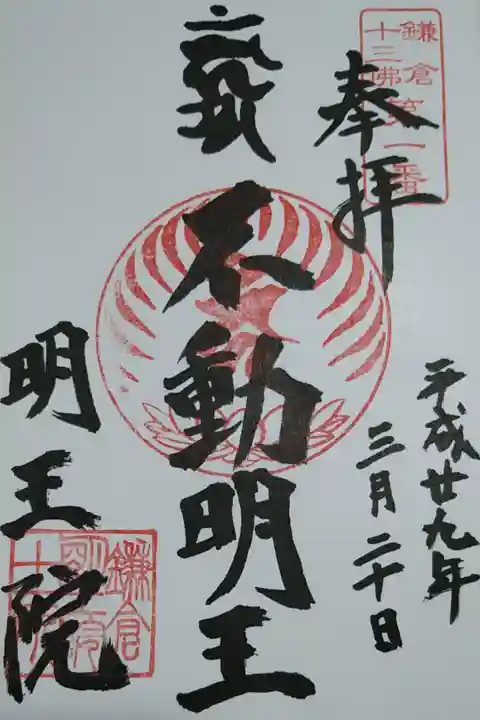 鎌倉
十三佛第一番
奉拝
不動明王
平成廿九年
三月二十日
明王院
鎌倉